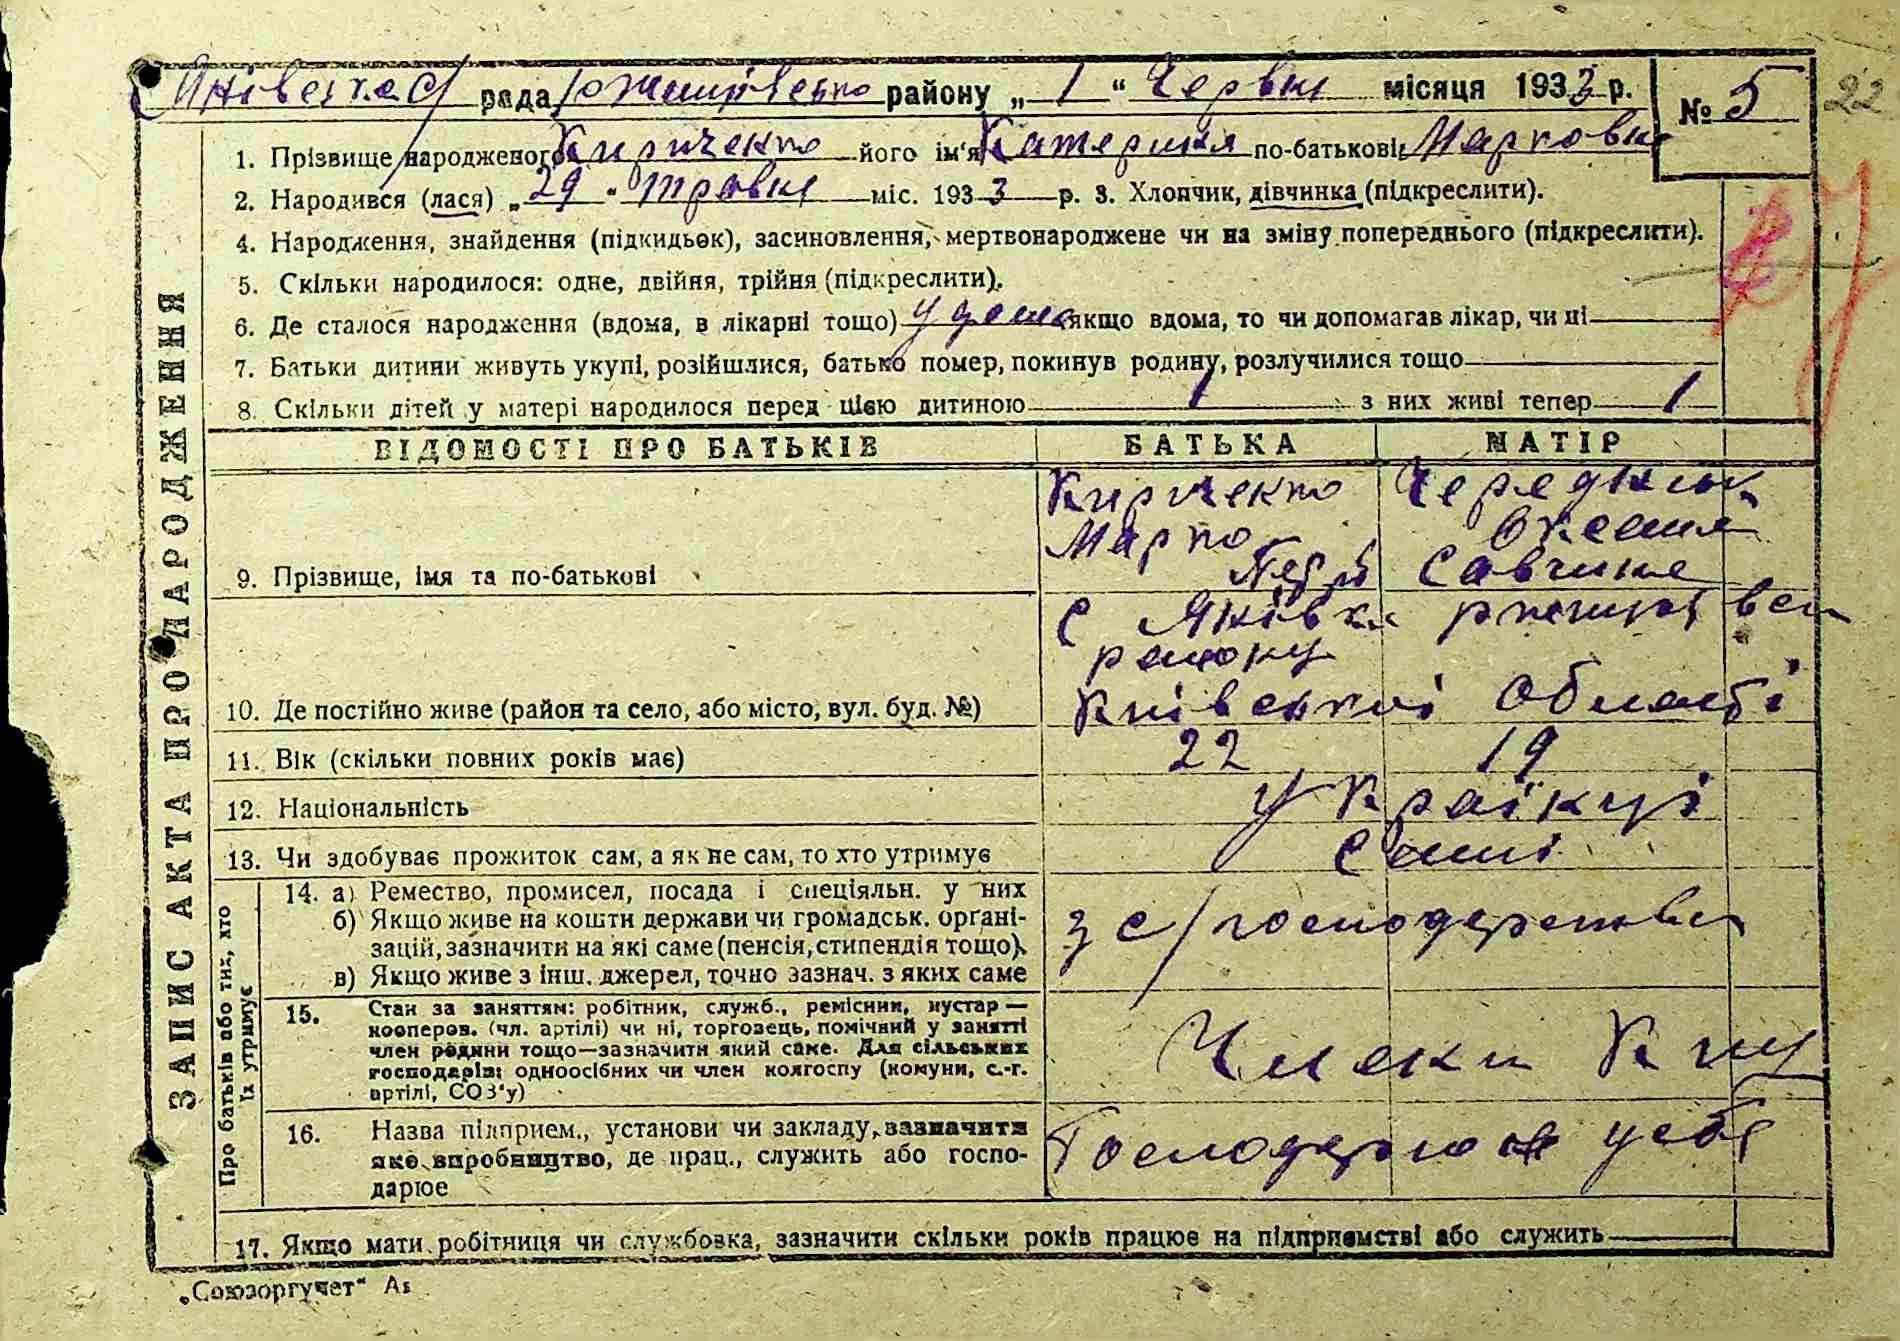 Янівська с/рада Ржищівсько району „1" Червня місяця 1933 р. № 5 22
1. Прізвище народженого Кириченко його ім'я Катерина по-батькові Марковна
2. Народився (лася) „29" травня міс. 1933 р. 3. Хлопчик, дівчинка (підкреслити).
4. Народження, знайдення (підкидьок), засиновлення, мертвонароджене чи на зміну попереднього (підкреслити).
5. Скільки народилося: одне, двійня, трійня (підкреслити).
6. Де сталося народження (вдома, в лікарні тощо) у дома якщо вдома, то чи допомагав лікар, чи ні
7. Батьки дитини живуть укупі, розійшлися, батько помер, покинув родину, розлучилися тощо
8. Скільки дітей у матері народилося перед цією дитиною 1 з них живі тепер 1
ЗАПИС АКТА ПРО НАРОДЖЕННЯ
ВІДОМОСТІ ПРО БАТЬКІВ БАТЬКА МАТІР
Кириченко
Марко
9. Прізвище, імя та по-батькові Савчина
с Янівка
району
10. Де постійно живе (район та село, або місто, вул. буд. №) Київської області
11. Вік (скільки повних років має) 22 19
12. Національність Українці
13. Чи здобуває прожиток сам, а як не сам, то хто утримує Самі
Про батьків або тих, хто
їх утримує
14. а) Ремество, промисел, посада і спеціяльн. у них
б) Якщо живе на кошти держави чи громадськ. орґані-
зацій, зазначити на які саме (пенсія, стипендія тощо). з с/господарства
в) Якщо живе з інш. джерел, точно зазнач. з яких саме
15. Стан за заняттям: робітник, служб., ремісник, кустар —
кооперов. (чл. артілі) чи ні, торговець, помічний у занятті
член родини тощо—зазначити який саме. Для сільських Члени
господарів: одноосібних чи член колгоспу (комуни, с.-г.
артілі, СОЗ'у)
16. Назва підприєм., установи чи закладу, зазначити
яке виробництво, де прац., служить або госпо-
дарює у себе
17. Якщо мати робітниця чи службовка, зазначити скільки років працює на підприємстві або служить
„Союзоргучет"